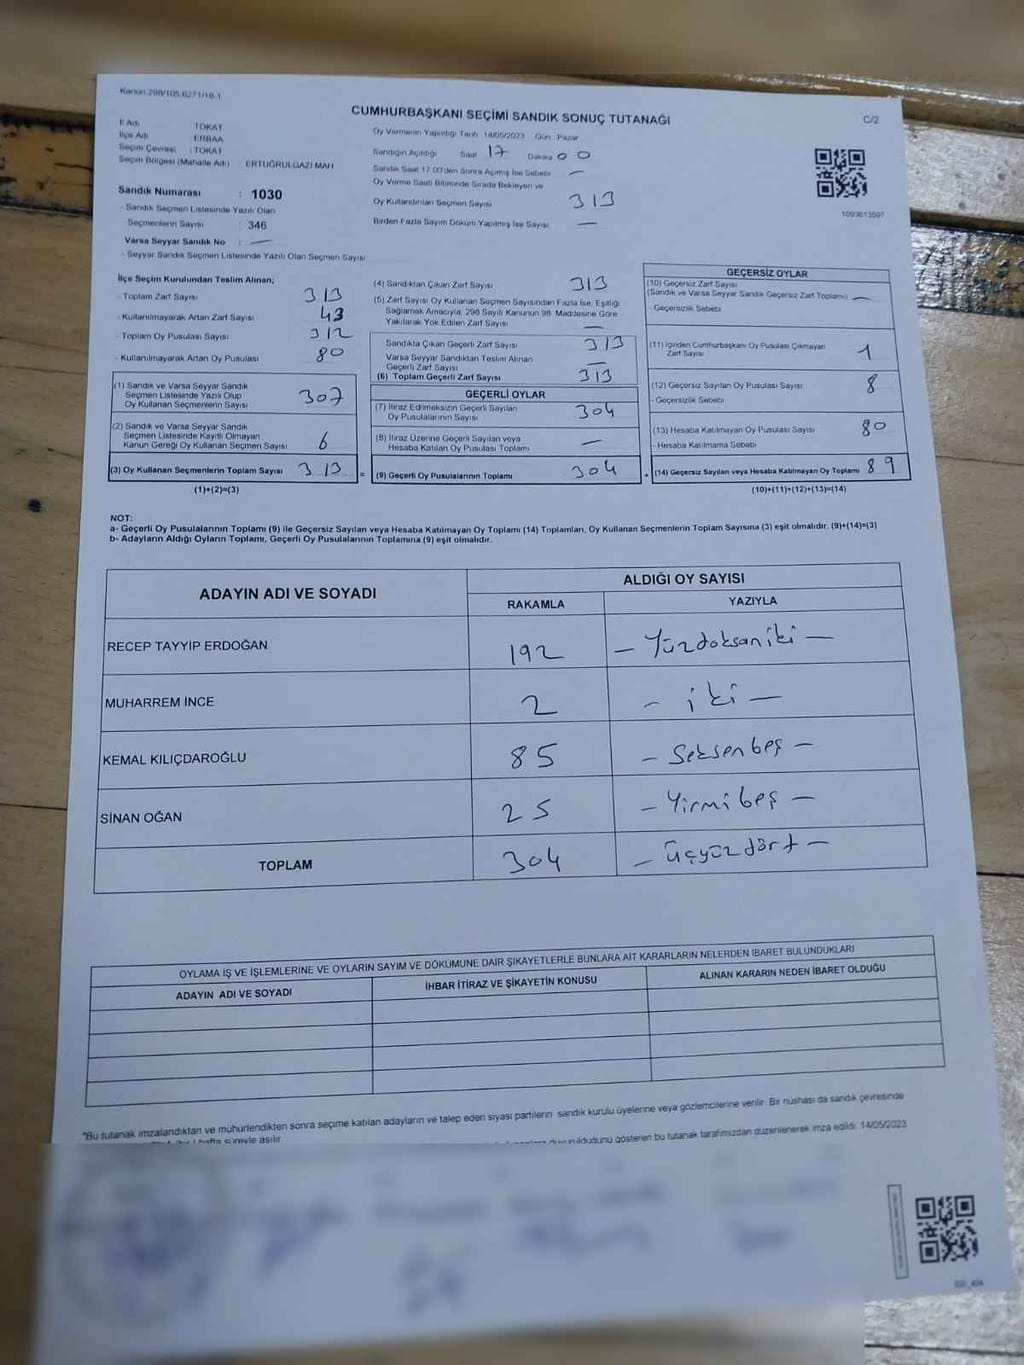 Kanun:298/105,6271/18-1
CUMHURBAŞKANI SEÇİMİ SANDIK SONUÇ TUTANAĞI
C/2
İl Adı : TOKAT
İlçe Adı : ERBAA
Seçim Çevresi : TOKAT
Seçim Bölgesi (Mahalle Adı) : ERTUĞRULGAZİ MAH.
Sandık Numarası : 1030
- Sandık Seçmen Listesinde Yazılı Olan
Seçmenlerin Sayısı : 346
Varsa Seyyar Sandık No : —
- Seyyar Sandık Seçmen Listesinde Yazılı Olan Seçmen Sayısı
Oy Vermenin Yapıldığı Tarih 14/05/2023 Gün Pazar
Sandığın Açıldığı Saat 17 Dakika 00
Sandık Saat 17:00'den Sonra Açılmış İse Sebebi —
Oy Verme Saati Bitiminde Sırada Bekleyen ve
Oy Kullandırılan Seçmen Sayısı 313
Birden Fazla Sayım Döküm Yapılmış İse Sayısı —
1093613597
İlçe Seçim Kurulundan Teslim Alınan;
- Toplam Zarf Sayısı 313
- Kullanılmayarak Artan Zarf Sayısı 43
- Toplam Oy Pusulası Sayısı 312
- Kullanılmayarak Artan Oy Pusulası 80
(1) Sandık ve Varsa Seyyar Sandık
Seçmen Listesinde Yazılı Olup
Oy Kullanan Seçmenlerin Sayısı 307
(2) Sandık ve Varsa Seyyar Sandık
Seçmen Listesinde Kayıtlı Olmayan
Kanun Gereği Oy Kullanan Seçmen Sayısı 6
(3) Oy Kullanan Seçmenlerin Toplam Sayısı 313 =
(1)+(2)=(3)
(4) Sandıktan Çıkan Zarf Sayısı 313
(5) Zarf Sayısı Oy Kullanan Seçmen Sayısından Fazla İse, Eşitliği
Sağlamak Amacıyla, 298 Sayılı Kanunun 98. Maddesine Göre
Yakılarak Yok Edilen Zarf Sayısı —
Sandıkta Çıkan Geçerli Zarf Sayısı 313
Varsa Seyyar Sandıktan Teslim Alınan
Geçerli Zarf Sayısı —
(6) Toplam Geçerli Zarf Sayısı 313
GEÇERLİ OYLAR
(7) İtiraz Edilmeksizin Geçerli Sayılan
Oy Pusulalarının Sayısı 304
(8) İtiraz Üzerine Geçerli Sayılan veya
Hesaba Katılan Oy Pusulası Toplamı —
(9) Geçerli Oy Pusulalarının Toplamı 304 +
GEÇERSİZ OYLAR
(10) Geçersiz Zarf Sayısı
(Sandık ve Varsa Seyyar Sandık Geçersiz Zarf Toplamı) —
- Geçersizlik Sebebi
(11) İçinden Cumhurbaşkanı Oy Pusulası Çıkmayan
Zarf Sayısı 1
(12) Geçersiz Sayılan Oy Pusulası Sayısı 8
- Geçersizlik Sebebi
(13) Hesaba Katılmayan Oy Pusulası Sayısı 80
- Hesaba Katılmama Sebebi
(14) Geçersiz Sayılan veya Hesaba Katılmayan Oy Toplamı 89
(10)+(11)+(12)+(13)=(14)
NOT:
a- Geçerli Oy Pusulalarının Toplamı (9) ile Geçersiz Sayılan veya Hesaba Katılmayan Oy Toplamı (14) Toplamları, Oy Kullanan Seçmenlerin Toplam Sayısına (3) eşit olmalıdır. (9)+(14)=(3)
b- Adayların Aldığı Oyların Toplamı, Geçerli Oy Pusulalarının Toplamına (9) eşit olmalıdır.
ADAYIN ADI VE SOYADI ALDIĞI OY SAYISI
RAKAMLA YAZIYLA
RECEP TAYYİP ERDOĞAN 192 — Yüzdoksaniki —
MUHARREM İNCE 2 — iki —
KEMAL KILIÇDAROĞLU 85 — Seksenbeş —
SİNAN OĞAN 25 — Yirmibeş —
TOPLAM 304 — üçyüzdört —
OYLAMA İŞ VE İŞLEMLERİNE VE OYLARIN SAYIM VE DÖKÜMÜNE DAİR ŞİKAYETLERLE BUNLARA AİT KARARLARIN NELERDEN İBARET BULUNDUKLARI
ADAYIN ADI VE SOYADI İHBAR İTİRAZ VE ŞİKAYETİN KONUSU ALINAN KARARIN NEDEN İBARET OLDUĞU
*Bu tutanak imzalandıktan ve mühürlendikten sonra seçime katılan adayların ve talep eden siyasi partilerin sandık kurulu üyelerine veya gözlemcilerine verilir. Bir nüshası da sandık çevresinde
hafta süreyle asılır.
duyurulduğunu gösteren bu tutanak tarafımızdan düzenlenerek imza edildi. 14/05/2023